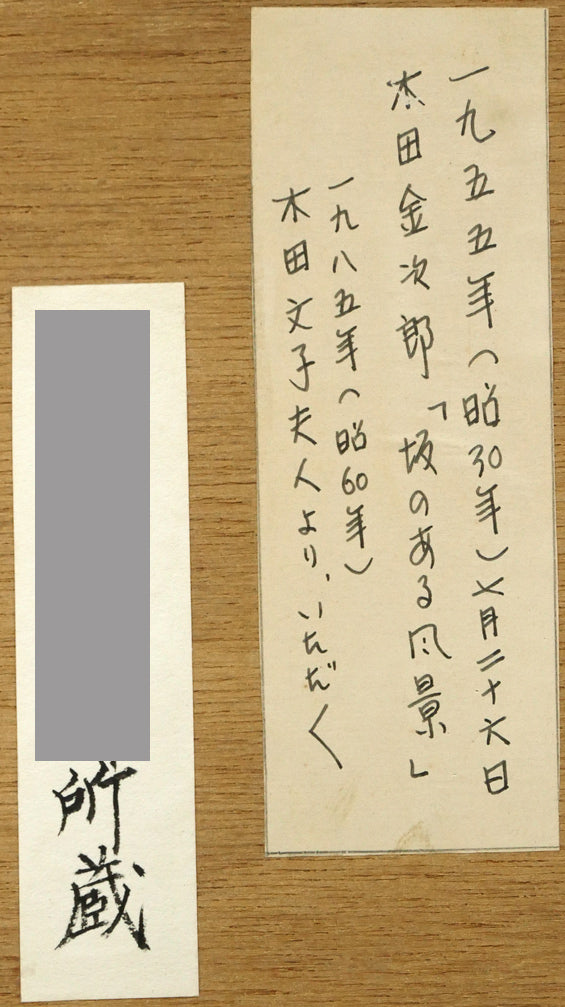 一九五五年(昭30年)七月二十六日
木田金次郎「坂のある風景」
一九八五年(昭60年)
木田文子夫人より、いただく
所蔵